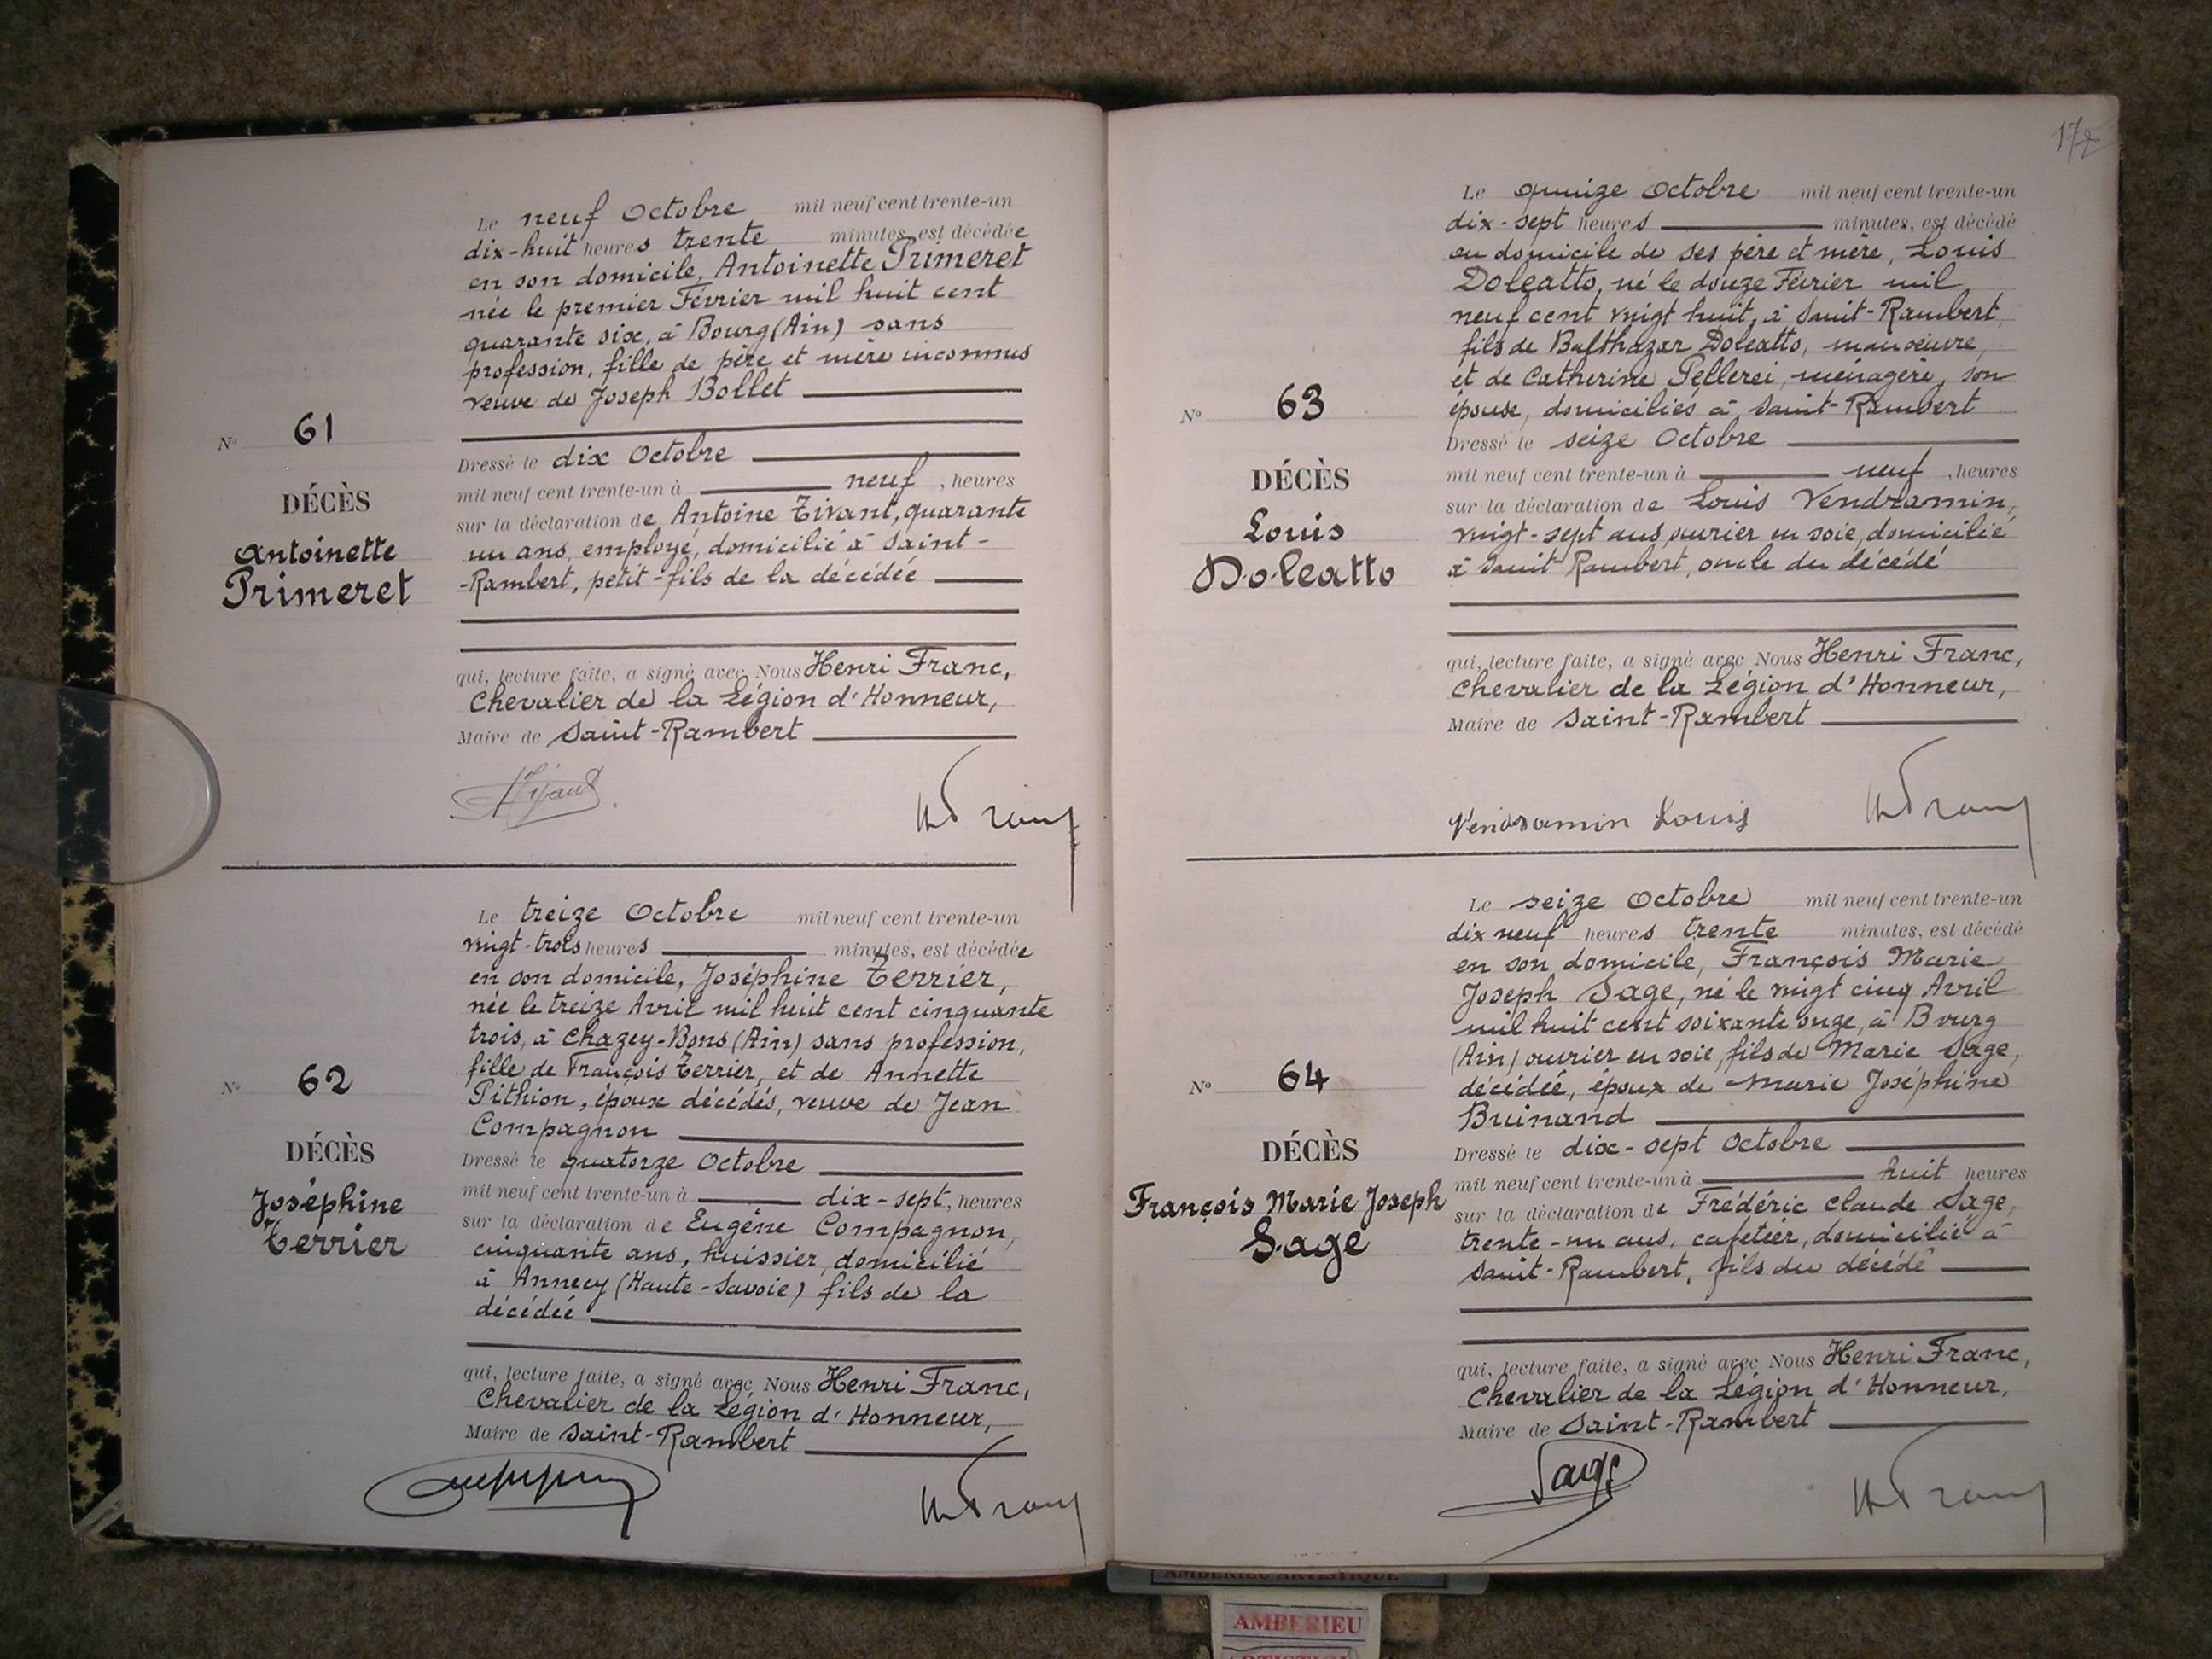 Le neuf Octobre mil neuf cent trente-un
dix-huit heures trente minutes, est décédée
en son domicile, Antoinette Primeret
née le premier Février mil huit cent
quarante six, à Bourg (Ain) sans
profession, fille de père et mère inconnus
veuve de Joseph Bollet
N° 61
Dressé le dix Octobre
mil neuf cent trente-un à neuf, heures
DÉCÈS
sur la déclaration de Antoine Tivant, quarante
Antoinette
un ans, employé, domicilié à Saint-
Primeret
-Rambert, petit-fils de la décédée
qui, lecture faite, a signé avec Nous Henri Franc,
Chevalier de la Légion d'Honneur,
Maire de Saint-Rambert
Le treize Octobre mil neuf cent trente-un
vingt-trois heures minutes, est décédée
en son domicile, Joséphine Terrier,
née le treize Avril mil huit cent cinquante
trois, à Chazey-Bons (Ain) sans profession,
fille de François Terrier, et de Annette
N° 62
Pithion, époux décédés, veuve de Jean
Compagnon
DÉCÈS
Dressé le quatorze Octobre
Joséphine
mil neuf cent trente-un à dix-sept, heures
Terrier
sur la déclaration de Eugène Compagnon,
cinquante ans, huissier, domicilié
à Annecy (Haute-Savoie) fils de la
décédée
qui, lecture faite, a signé avec Nous Henri Franc,
Chevalier de la Légion d'Honneur,
Maire de Saint-Rambert
172
Le quinze Octobre mil neuf cent trente-un
dix-sept heures minutes, est décédé
au domicile de ses père et mère, Louis
Doleatto, né le douze Février mil
neuf cent vingt huit, à Saint-Rambert
fils de Balthazar Doleatto, manoeuvre,
et de Catherine Pellerei, ménagère, son
N° 63
épouse, domiciliés à Saint-Rambert
Dressé le seize Octobre
DÉCÈS
mil neuf cent trente-un à neuf, heures
Louis
sur la déclaration de Louis Vendramin,
vingt-sept ans, ouvrier en soie, domicilié
Doleatto
à Saint Rambert, oncle du décédé
qui, lecture faite, a signé avec Nous Henri Franc,
Chevalier de la Légion d'Honneur,
Maire de Saint-Rambert
Vendramin Louis
Le seize Octobre mil neuf cent trente-un
dix neuf heures trente minutes, est décédé
en son domicile, François Marie
Joseph Sage, né le vingt cinq Avril
mil huit cent soixante onze, à Bourg
(Ain) ouvrier en soie, fils de Marie Sage,
N° 64
décédée, époux de Marie Joséphine
Buinand
DÉCÈS
Dressé le dix-sept Octobre
François Marie Joseph
mil neuf cent trente-un à huit heures
Sage
sur la déclaration de Frédéric Claude Sage,
trente-un ans, cafetier, domicilié à
Saint-Rambert, fils du décédé
qui, lecture faite, a signé avec Nous Henri Franc,
Chevalier de la Légion d'Honneur,
Maire de Saint-Rambert
Sage
AMBERIEU ARTISTIQUE
AMBERIEU